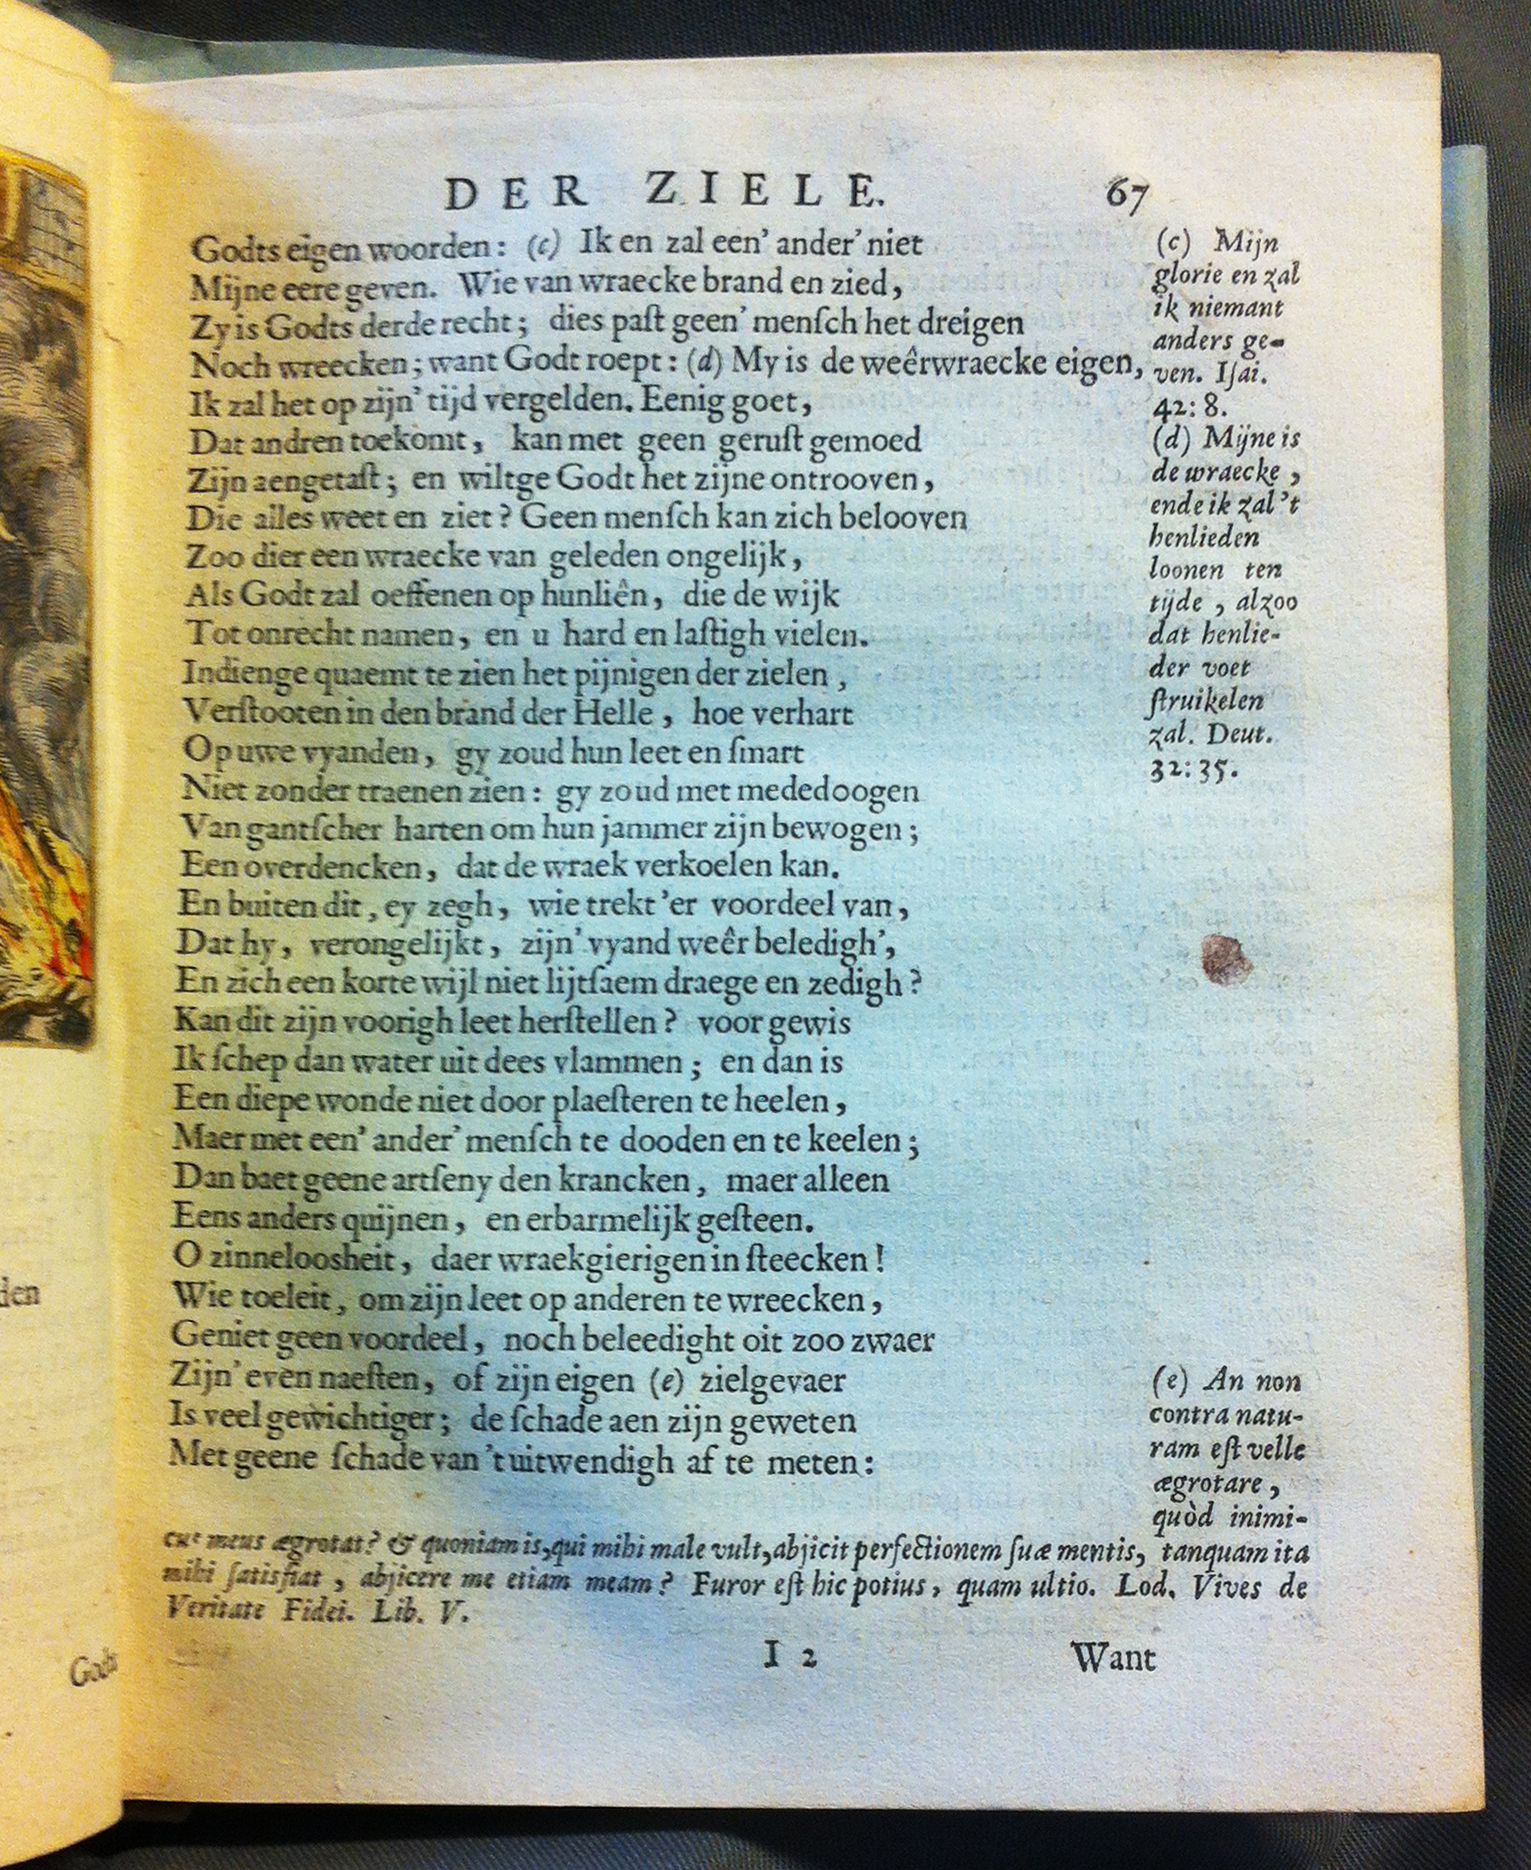 DER ZIELE. 67
Godts eigen woorden: (c) Ik en zal een' ander' niet
Mijne eere geven. Wie van wraecke brand en zied,
Zy is Godts derde recht; dies paſt geen' menſch het dreigen
Noch wreecken; want Godt roept: (d) My is de weêrwraecke eigen,
Ik zal het op zijn' tijd vergelden. Eenig goet,
Dat andren toekomt, kan met geen geruſt gemoed
Zijn aengetaſt; en wiltge Godt het zijne ontrooven,
Die alles weet en ziet? Geen menſch kan zich belooven
Zoo dier een wraecke van geleden ongelijk,
Als Godt zal oeffenen op hunliên, die de wijk
Tot onrecht namen, en u hard en laſtigh vielen.
Indienge quaemt te zien het pijnigen der zielen,
Verſtooten in den brand der Helle, hoe verhart
Op uwe vyanden, gy zoud hun leet en ſmart
Niet zonder traenen zien: gy zoud met mededoogen
Van gantſcher harten om hun jammer zijn bewogen;
Een overdencken, dat de wraek verkoelen kan.
En buiten dit, ey zegh, wie trekt 'er voordeel van,
Dat hy, verongelijkt, zijn' vyand weêr beledigh',
En zich een korte wijl niet lijtſaem draege en zedigh?
Kan dit zijn voorigh leet herſtellen? voor gewis
Ik ſchep dan water uit dees vlammen; en dan is
Een diepe wonde niet door plaeſteren te heelen,
Maer met een' ander' menſch te dooden en te keelen;
Dan baet geene artſeny den krancken, maer alleen
Eens anders quijnen, en erbarmelijk geſteen.
O zinneloosheit, daer wraekgierigen in ſteecken!
Wie toeleit, om zijn leet op anderen te wreecken,
Geniet geen voordeel, noch beleedight oit zoo zwaer
Zijn' even naeſten, of zijn eigen (e) zielgevaer
Is veel gewichtiger; de ſchade aen zijn geweten
Met geene ſchade van 't uitwendigh af te meten:
(c) Mijn
glorie en zal
ik niemant
anders ge-
ven. Iſai.
42: 8.
(d) Mijne is
de wraecke,
ende ik zal 't
henlieden
loonen ten
tijde, alzoo
dat henlie-
der voet
ſtruikelen
zal. Deut.
32: 35.
(e) An non
contra natu-
ram eſt velle
ægrotare,
quòd inimi-
cus meus ægrotat? & quoniam is, qui mihi male vult, abjicit perfectionem ſuæ mentis, tanquam ita
mihi ſatisfiat, abjicere me etiam meam? Furor eſt hic potius, quam ultio. Lod. Vives de
Veritate Fidei. Lib. V.
I 2 Want
den
Godts